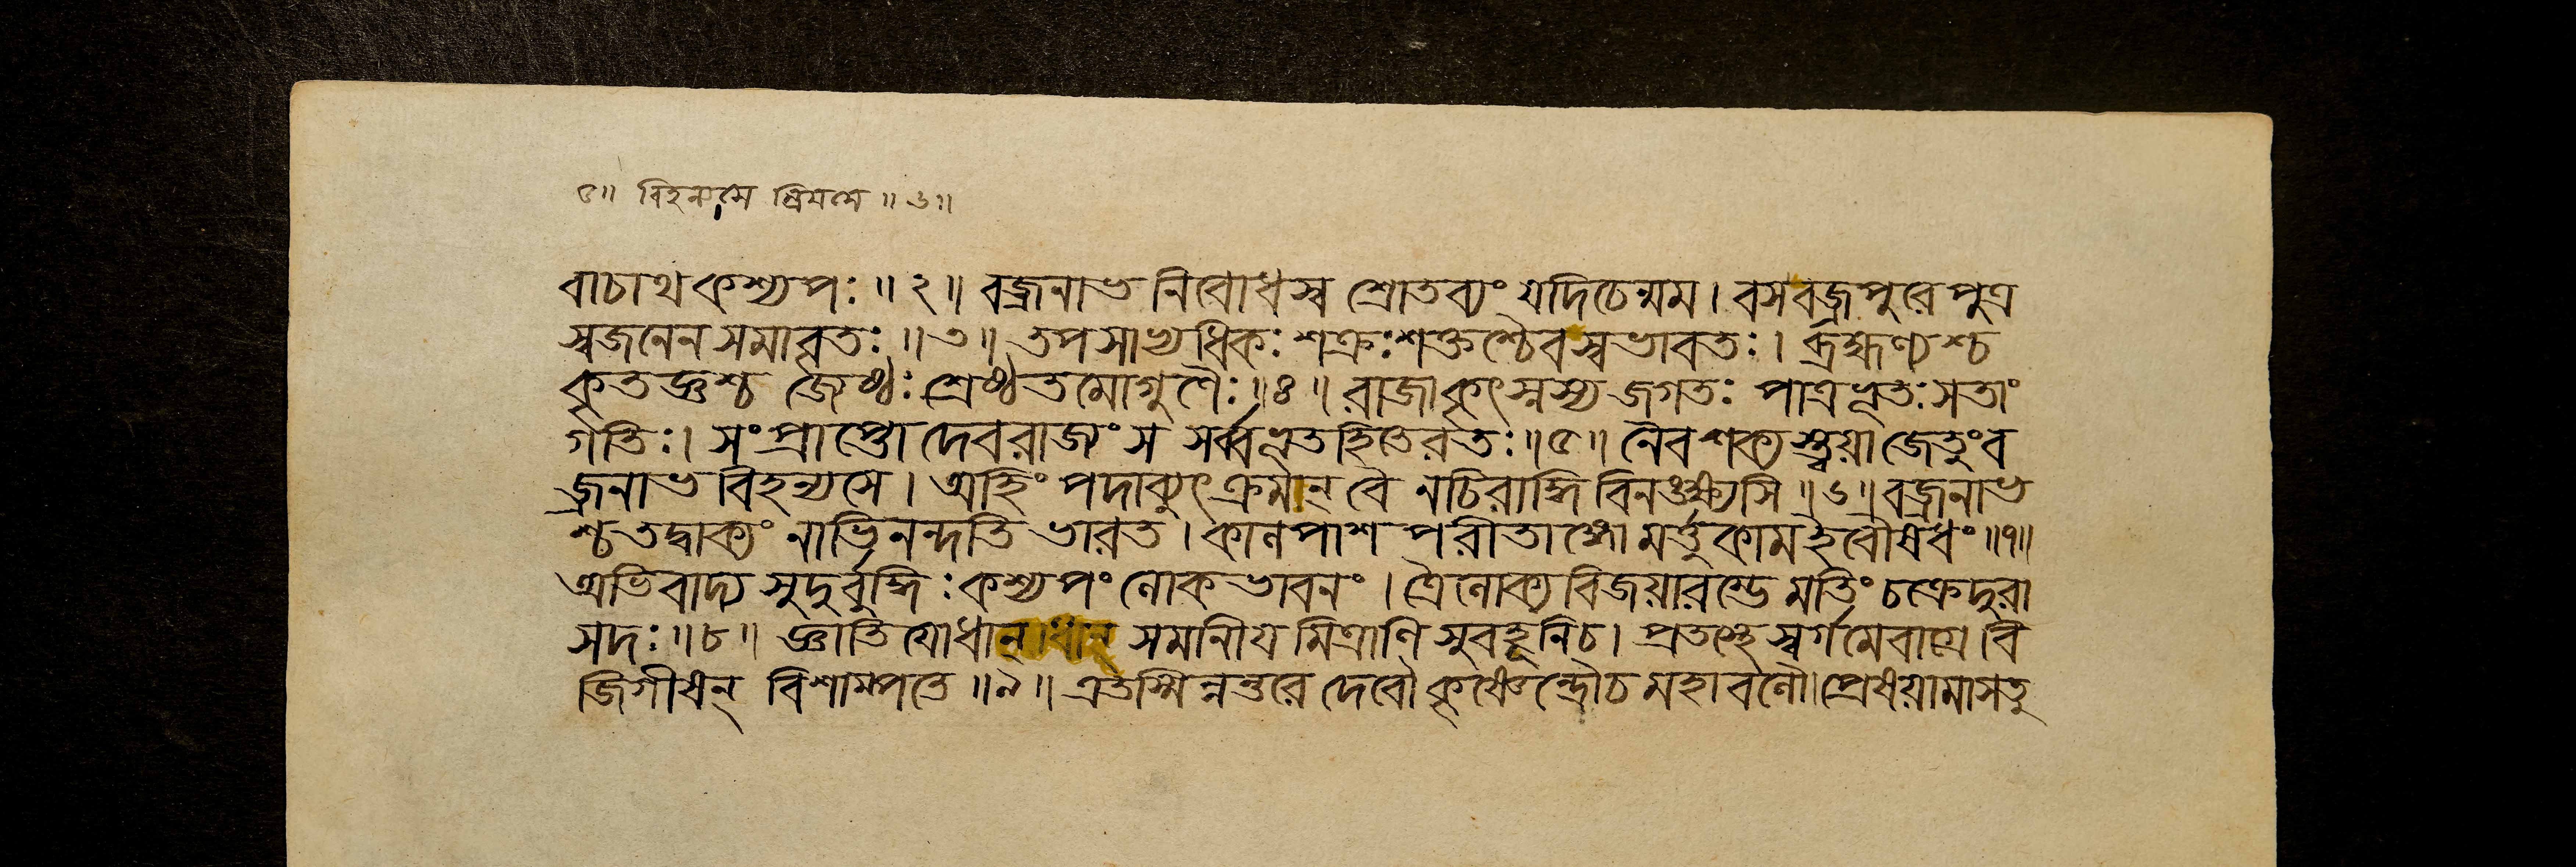 ৫॥ বিহন্যসে ম্রিয়সে ॥ ৬॥
বাচাথ কশ্যপঃ ॥ ২ ॥ বজ্রনাভ নিবোধস্ব শ্রোতব্যং যদিচেন্মম । বসবজ্রপুরে পুত্র
স্বজনেন সমাবৃতঃ ॥ ৩ ॥ তপসাভ্যধিকঃ শক্রঃ শক্তশ্চৈবস্বভাবতঃ । ব্রহ্মণ্যশ্চ
কৃতজ্ঞশ্চ জ্যেষ্ঠঃ শ্রেষ্ঠতমোগুণৈঃ ॥ ৪ ॥ রাজাকৃৎস্নস্য জগতঃ পাত্রভূতঃ সতাং
গতিঃ । সংপ্রাপ্তো দেবরাজ্যং স সর্ব্বভূতহিতেরতঃ ॥ ৫ ॥ নৈবশক্যস্ত্বয়া জেতুংব
জ্রনাভ বিহন্যসে । অহিং পদাব্যুৎক্রমান্ বৈ নচিরাদ্ধি বিনঙ্ক্ষ্যসি ॥ ৬ ॥ বজ্রনাভ
শ্চতদ্বাক্যং নাভিনন্দতি ভারত । কালপাশ পরীতাঙ্গো মর্ত্তুকামইবৌষধং ॥ ৭ ॥
অভিবাদ্য সুদুর্বুদ্ধিঃ কশ্যপং লোকভাবনং । ত্রৈলোক্য বিজয়ারম্ভে মতিং চক্রেদুরা
সদঃ ॥ ৮ ॥ জ্ঞাতি যোধান্ সমানীয় মিত্রাণি সুবহূনিচ । প্রতস্থে স্বর্গমেবাগ্রে । বি
জিগীষন্ বিশাম্পতে ॥ ৯ ॥ এতস্মিন্নন্তরে দেবৌ কৃষ্ণেন্দ্রৌচ মহাবলৌ । প্রেষয়ামাসতু